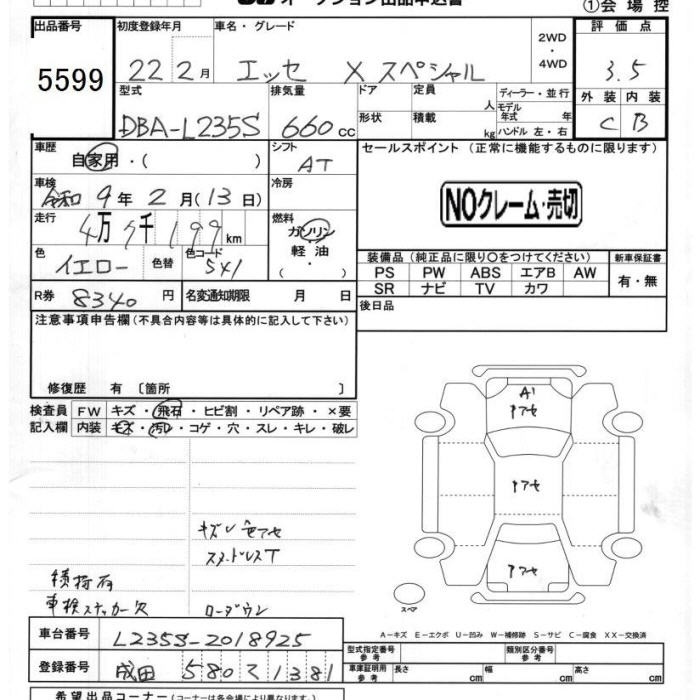 オークション出品申込書 ①会場控
出品番号 初度登録年月 車名・グレード 評価点
5599 22 2月 エッセ Xスペシャル 2WD ・ 4WD 3.5
型式 排気量 ドア 定員 人 ディーラー・並行 外装 内装
DBA-L235S 660cc 形状 積載 kg モデル年式 年 ハンドル 左・右 C B
車歴 自家用・( ) シフト AT セールスポイント (正常に機能するものに限ります)
車検 令和9年2月(13日) 冷房 NOクレーム・売切
走行 4万 千199km 燃料 ガソリン・軽油・
色 イエロー 色替 色コード 装備品(純正品に限り○をつけてください) 新車保証書
PS PW ABS エアB AW 有・無
SR ナビ TV カワ
R券 8340円 名変通知期限 月 日 後日品
注意事項申告欄(不具合内容等は具体的に記入して下さい)
修復歴 有〔箇所 〕
検査員 FW キズ・飛石・ヒビ割・リペア跡・×要
記入欄 内装 キズ・汚レ・コゲ・穴・スレ・キレ・破レ
A1
アセ
アセ
アセ
キズ 色アセ
スタッドレスT
車検ステッカー欠 ローダウン
スペア
A-キズ E-エクボ U-凹み W-補修跡 S-サビ C-腐食 XX-交換済
車台番号 L235S-2018925 型式指定番号 参考 類別区分番号 参考
登録番号 成田 580 1381 車庫証明用 参考 長さ cm 幅 cm 高さ cm
希望出品コーナー(コーナーは各会場により異なります)